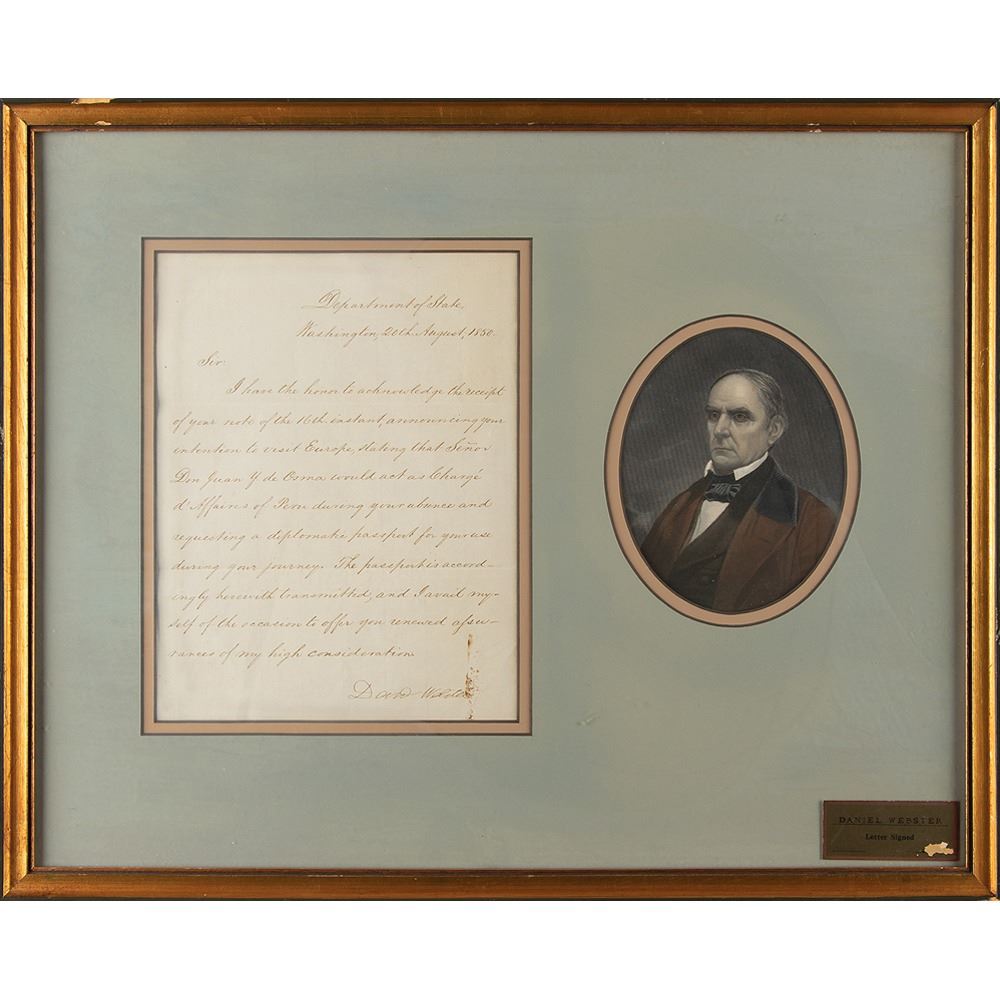 Department of State,
Washington, 20th August, 1850.
Sir:
I have the honor to acknowledge the receipt
of your note of the 16th instant, announcing your
intention to visit Europe, stating that Señor
Don Juan Y de Osma would act as Chargé
d'Affaires of Peru during your absence and
requesting a diplomatic passport for your use
during your journey. The passport is accord-
ingly herewith transmitted, and I avail my-
self of the occasion to offer you renewed assu-
rances of my high consideration.
Danl Webster
DANIEL WEBSTER
Letter Signed